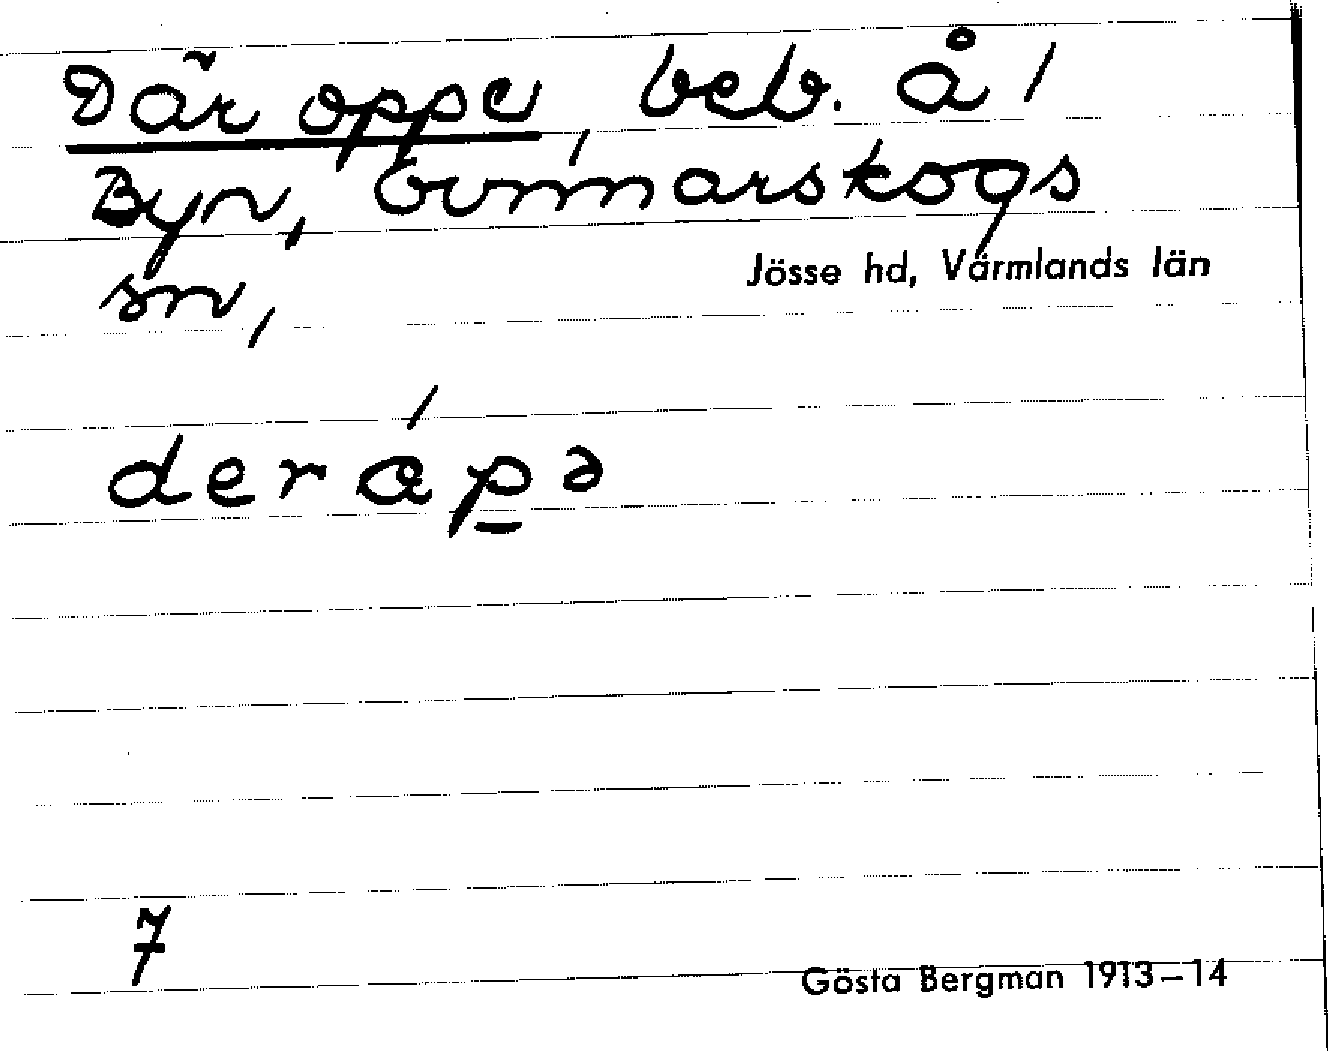 Där oppe, beb. å /
Byn, Gunnarskogs
sn,
Jösse hd, Värmlands län
7
Gösta Bergman 1913–14